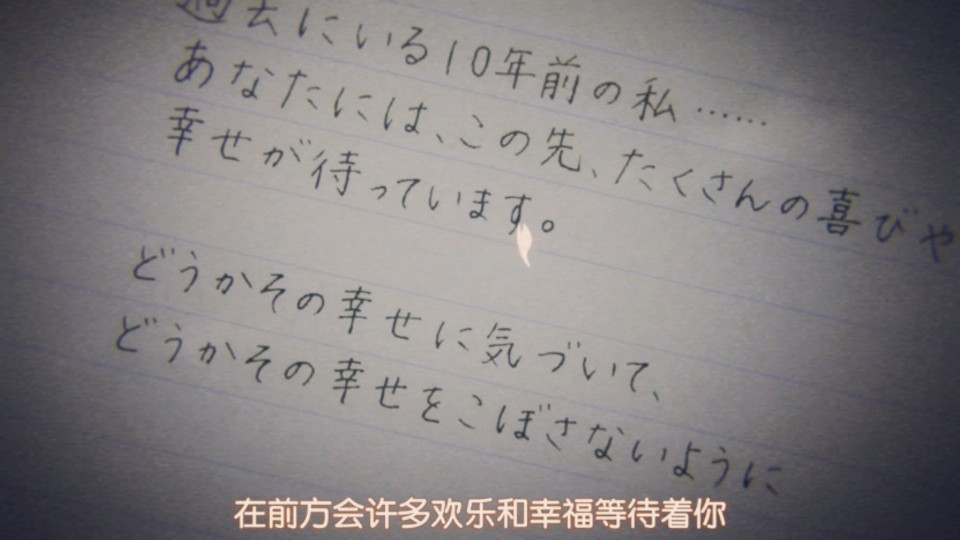 過去にいる10年前の私……
あなたには、この先、たくさんの喜びや
幸せが待っています。
どうかその幸せに気づいて、
どうかその幸せをこぼさないように
在前方会许多欢乐和幸福等待着你